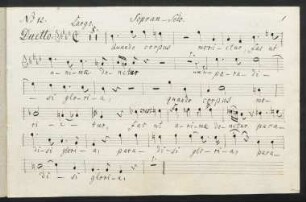 No 12. Largo. Sopran-Solo. 1
Duetto
quando corpus mori-etur fac ut
a-ni-mae do-netur pa-ra-di-
si glori-a. quando corpus mo-
ri-e-tur, fac ut a-ni-mae do-netur para-
disi glori-a para-di-si glo-ri-ae para-
di-si gloria.